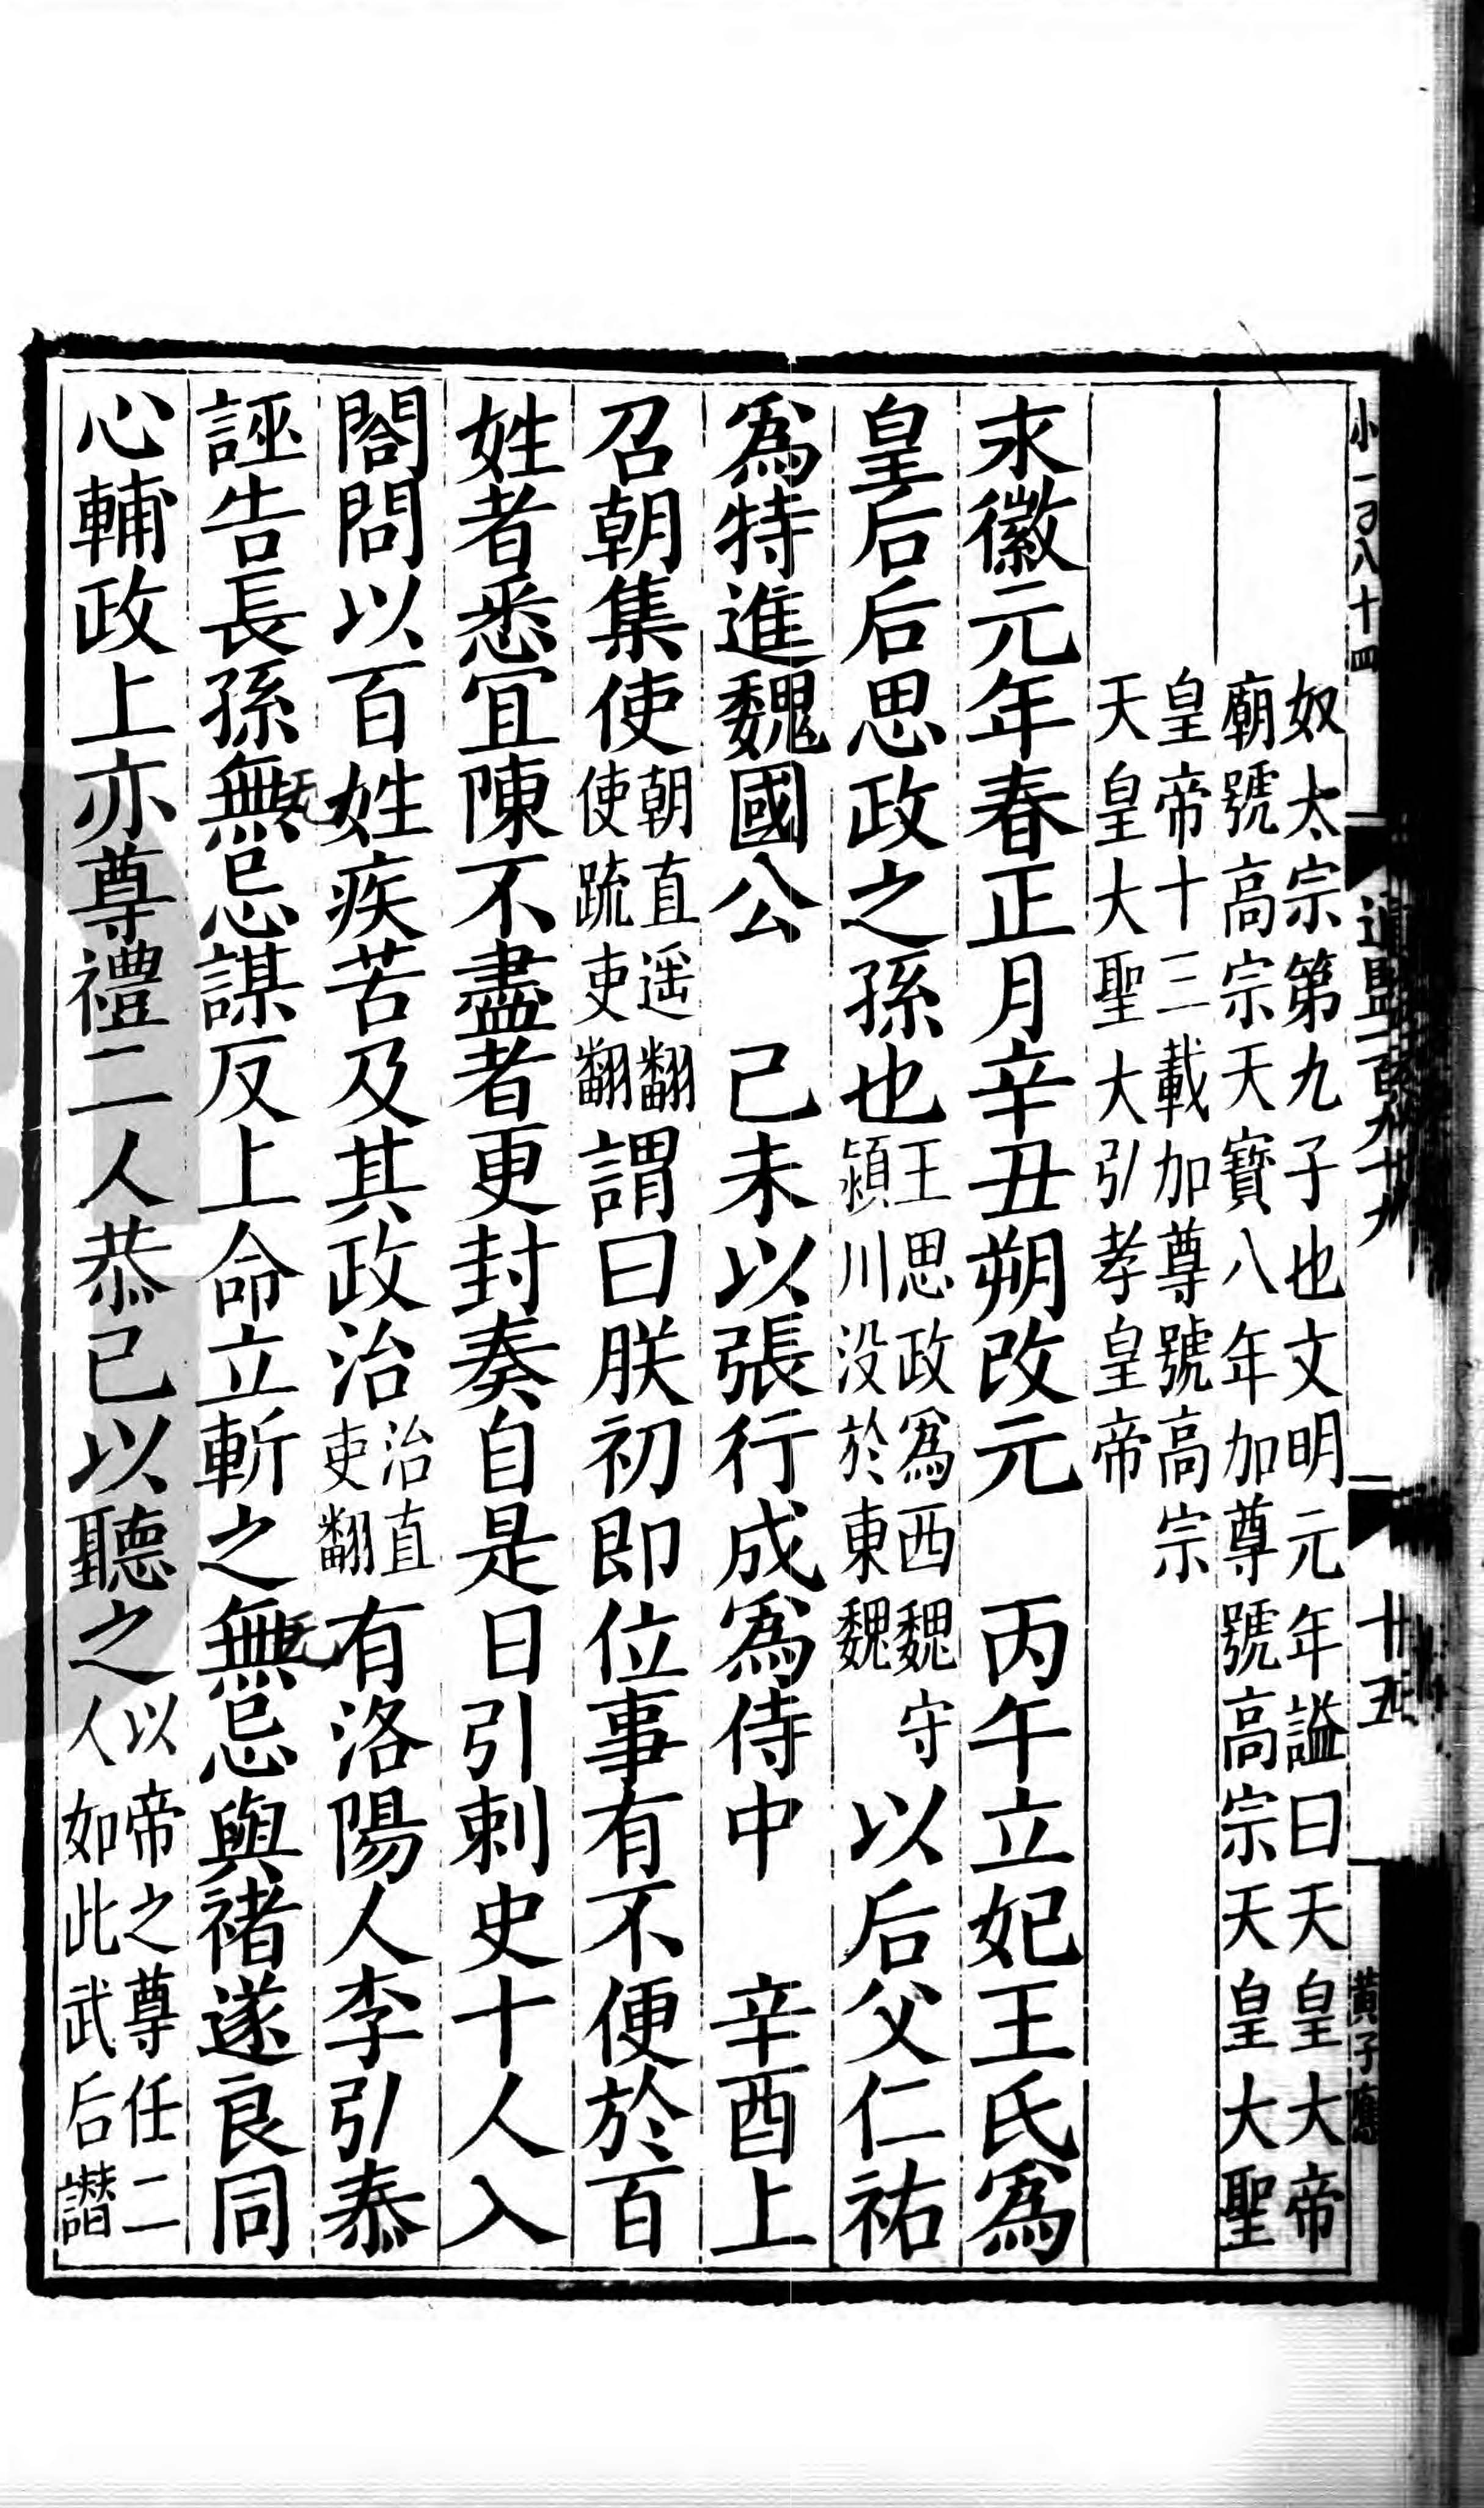 小一百八十四
通鑑一百九十九
十五
黃子應
奴太宗第九子也文明元年謚曰天皇大帝
廟號高宗天寶八年加尊號高宗天皇大聖
皇帝十三載加尊號高宗
天皇大聖大引孝皇帝
永徽元年春正月辛丑朔改元　丙午立妃王氏爲
皇后后思政之孫也王思政爲西魏守潁川没於東魏以后父仁祐
爲特進魏國公　己未以張行成爲侍中　辛酉上
召朝集使朝直遥翻使疏吏翻謂曰朕初即位事有不便於百
姓者悉宜陳不盡者更封奏自是日引刺史十人入
閤問以百姓疾苦及其政治治直吏翻有洛陽人李引泰
誣告長孫無忌謀反上命立斬之無忌與褚遂良同
心輔政上亦尊禮二人恭己以聽之以帝之尊任二人如此武后譖